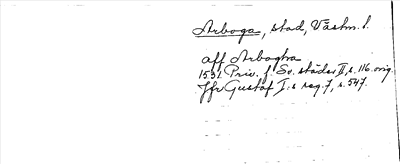 Arboga, stad, Västm. l.
aff Arbogha
1531 Priv. f. Sv. städer II, s. 116. orig.
Jfr Gustaf I:s reg. 7, s. 547.